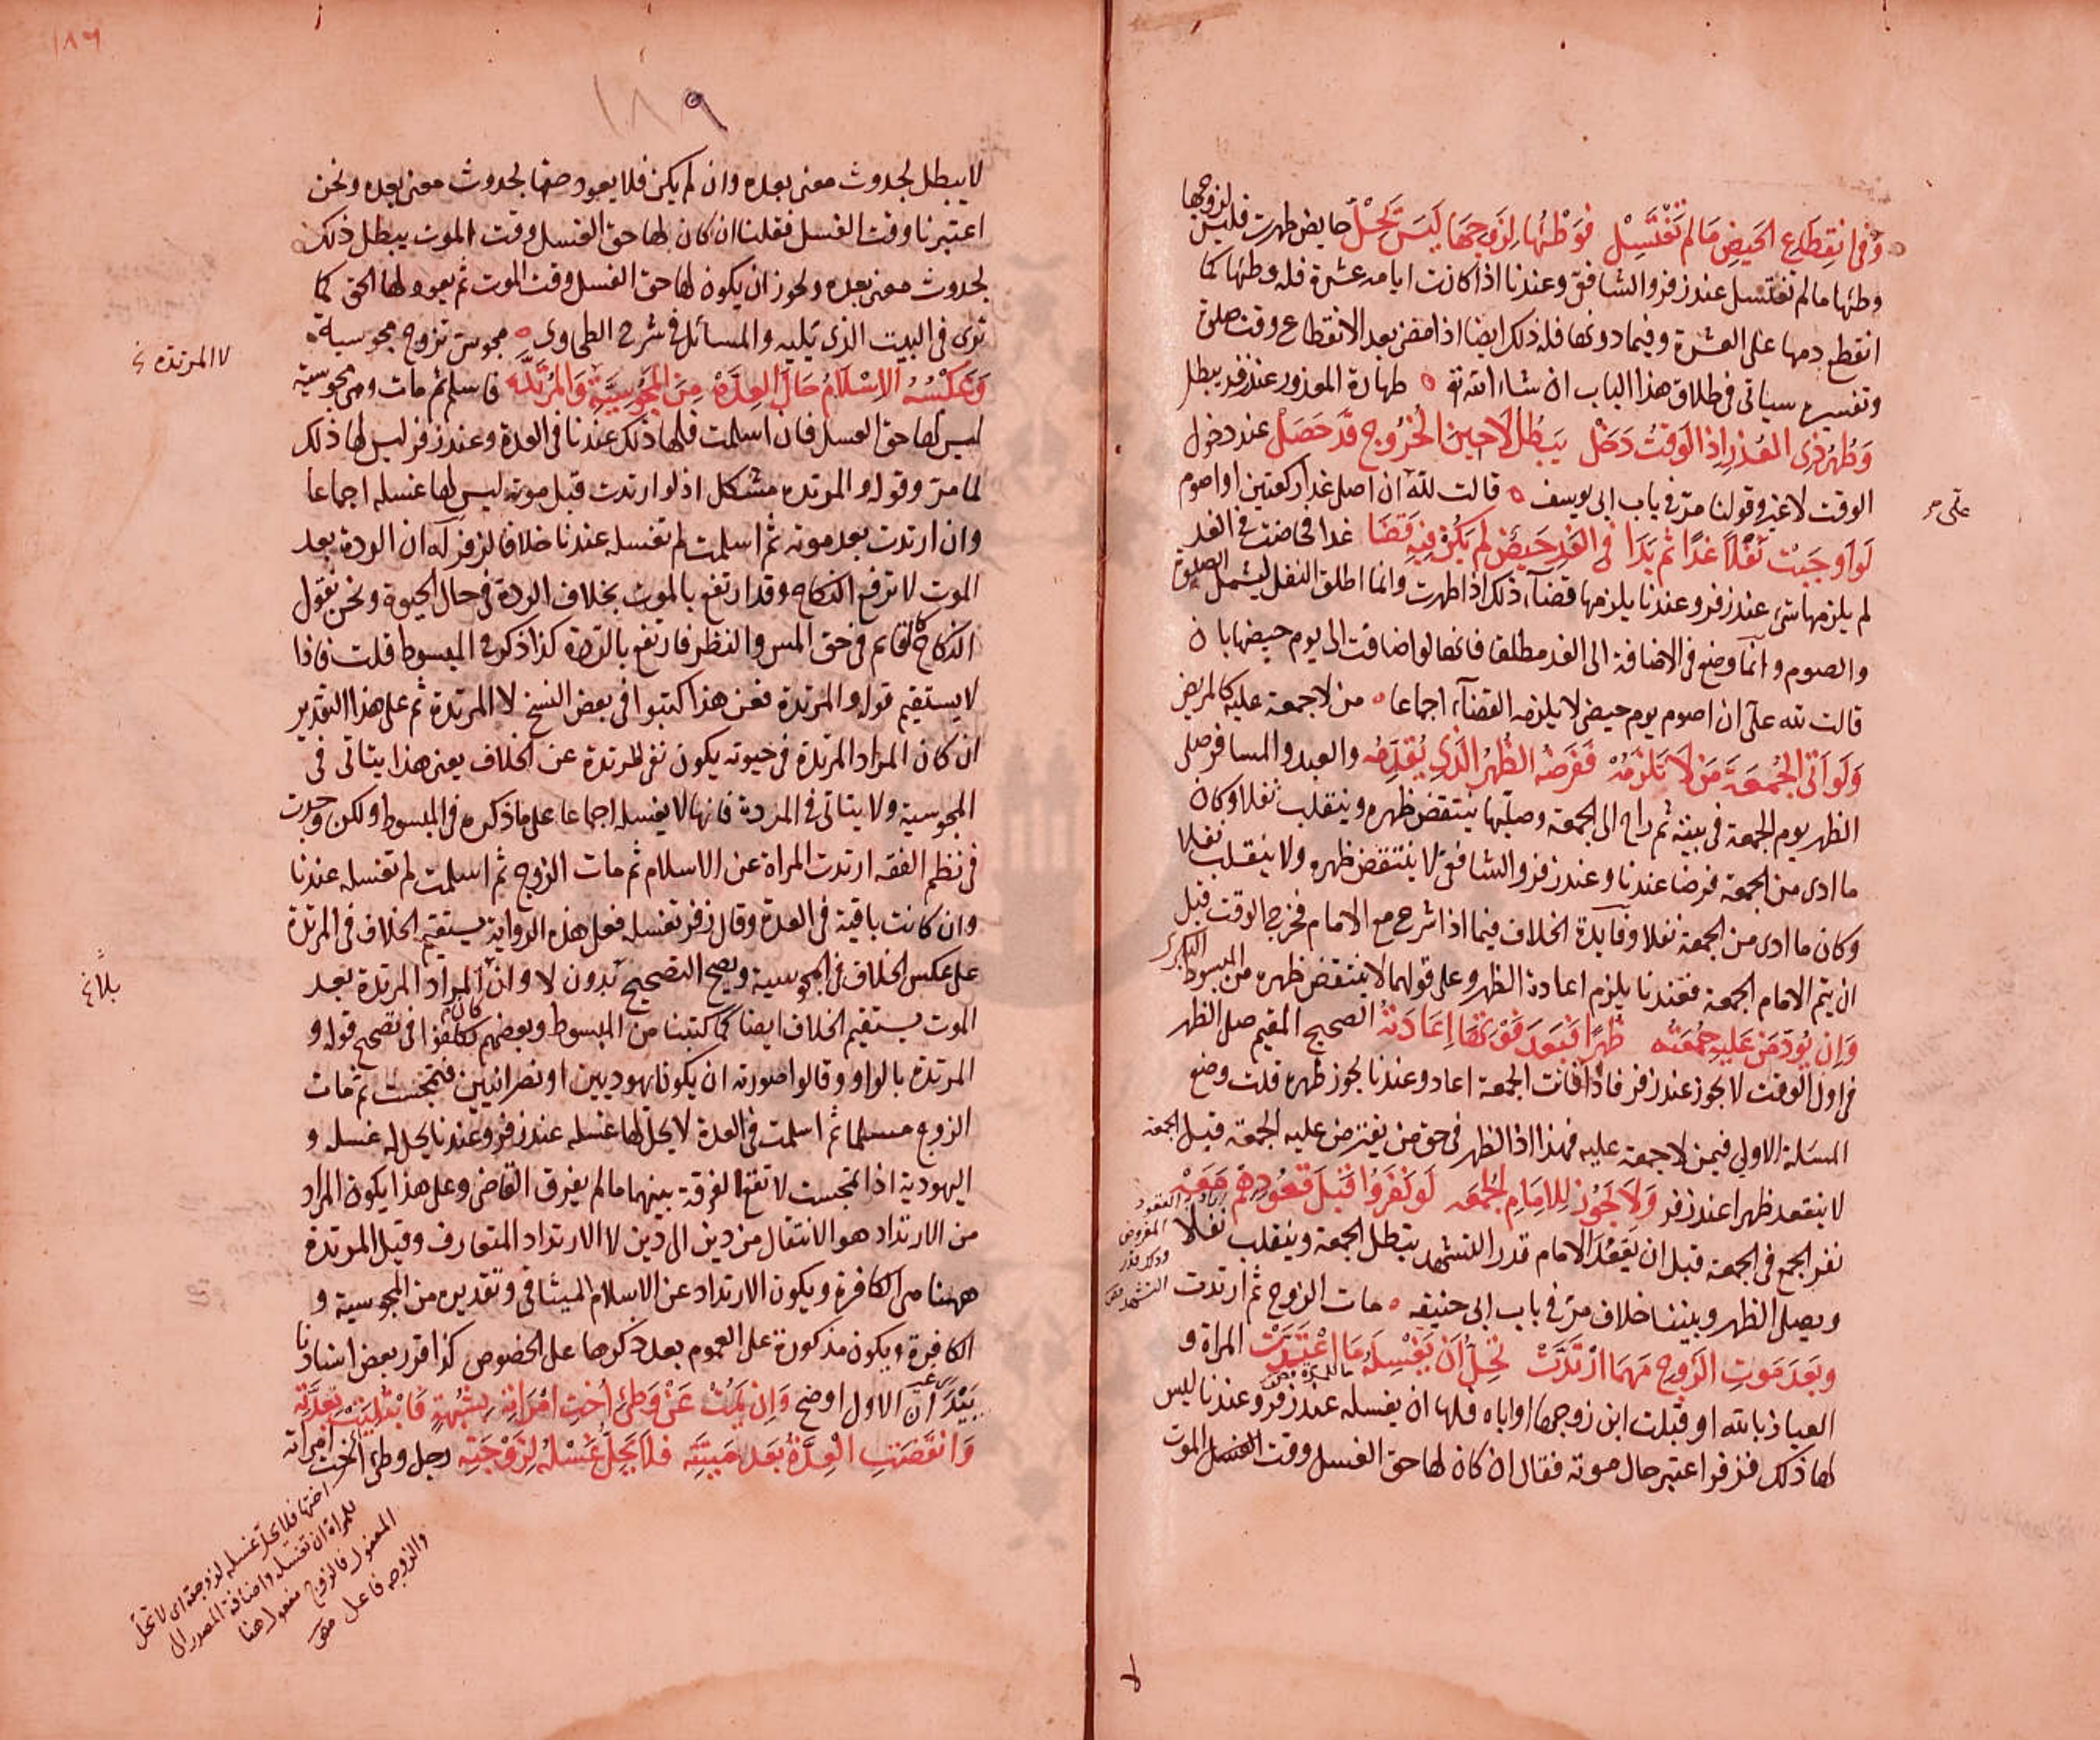 وفى انقطاع الحيض ما لم تغتسل فوطئها لزوجها ليس تحل حايض طهرت فليس لزوجها
وطئها ما لم تغتسل عند زفر والشافعى وعندنا اذا كانت ايامه عشرة فله وطئها كما
انقطع دمها على العشرة وفيما دونها فله ذلك ايضا اذا مضى بعد الانقطاع وقت صلوة
وتفسيره سياتى فى طلاق هذا الباب ان شاء الله تع طهارة المعذور عند زفر يبطل
وطهر ذى العذر اذا الوقت دخل يبطل لا حين الخروج قد حصل عند دخول
الوقت لا غير وقولنا مر فى باب ابى يوسف قالت لله ان اصلى غدا ركعتين او اصوم
لو اوجبت نفلا غدا ثم بدا فى الغد حيض لم يكن فيه قضا غدا فحاضت فى الغد
لم يلزمها شئ عند زفر وعندنا يلزمها قضاء ذلك اذا طهرت وانما اطلق النفل ليشمل الصلوة
والصوم وانما وضع فى الاضافة الى الغد مطلقا فانها لو اضافت الى يوم حيضها بان
قالت لله على ان اصوم يوم حيضى لا يلزمه القضاء اجماعا من لا جمعة عليه كالمريض
ولو اتى الجمعة من لا تلزمه ففرضه الظهر الذى يقدمه والعبد والمسافر صلى
الظهر يوم الجمعة فى بيته ثم راح الى الجمعة وصليها ينتقض ظهره وينقلب نفلا وكان
ما ادى من الجمعة فرضا عندنا وعند زفر والشافعى لا ينتقض ظهره ولا ينقلب نفلا
وكان ما ادى من الجمعة نفلا وفايدة الخلاف فيما اذا شرع مع الامام فخرج الوقت قبل
ان يتم الامام الجمعة فعندنا يلزم اعادة الظهر وعلى قولهما لا ينتقض ظهره من المبسوط البكرى
وان يؤد من عليه جمعته ظهرا فبعد فوتها اعادته الصحيح المقيم صلى الظهر
فى اول الوقت لا يجوز عند زفر فاذا فاتت الجمعة اعاد وعندنا يجوز ظهره قلت وضع
المسئلة الاولى فيمن لا جمعة عليه فهذا اذا الظهر فى حق من يفترض عليه الجمعة قبل الجمعة
لا ينعقد ظهرا عند زفر ولا تجوز للامام الجمعة لو نفروا قبل قعودهم معه
نفر الجمع فى الجمعة قبل ان يقعد الامام قدر التشهد يبطل الجمعة وينقلب نفلا
ويصلى الظهر وبيننا خلاف مر فى باب ابى حنيفه مات الزوج ثم ارتدت
وبعد موت الزوج مهما ارتدت تحل ان تغسله ما اعتدت المراة و
العياذ بالله او قبلت ابن زوجها او اباه فلها ان تغسله عند زفر وعندنا ليس
لها ذلك فزفر اعتبر حال موته فقال ان كان لها حق الغسل وقت الغسل الموت
على مر
المفروض
وذلك قدر
التشهد
١٨٩
١٨٦
لا يبطل لحدوث معنى بعده وان لم يكن فلا يعود حقها لحدوث معنى بعده ونحن
اعتبرنا وقت الغسل فقلنا ان كان لها حق الغسل وقت الموت يبطل ذلك
لحدوث معنى بعده ويجوز ان يكون لها حق الغسل وقت الموت ثم يعود لها الحق كما
ترى فى البيت الذى يليه والمسائل فى شرح الطحاوى مجوسى تزوج مجوسية
وعكسه الاسلام حال العدة من المجوسية والمرتدة فاسلم ثم مات وهى مجوسية
ليس لها حق الغسل فان اسلمت فلها ذلك عندنا فى العدة وعند زفر ليس لها ذلك
لما مر وقوله والمرتده مشكل اذ لو ارتدت قبل موته ليس لها غسله اجماعا
وان ارتدت بعد موته ثم اسلمت لم تغسله عندنا خلافا لزفر له ان الردة بعد
الموت لا ترفع النكاح وقد ارتفع بالموت بخلاف الردة فى حال الحيوة ونحن نقول
النكاح كالقايم فى حق المس والنظر فارتفع بالردة كذا ذكر فى المبسوط قلت فاذا
لا يستقيم قوله والمرتدة فعن هذا كتبوا فى بعض النسخ لا المرتدة ثم على هذا التقدير
ان كان المراد المرتدة فى حيوته يكون نفى المرتدة عن الخلاف يعنى هذا يتاتى فى
المجوسية ولا يتاتى فى المرتدة فانها لا تغسله اجماعا على ما ذكره فى المبسوط ولكن وجدت
فى نظم الفقه ارتدت المراة عن الاسلام ثم مات الزوج ثم اسلمت لم تغسله عندنا
وان كانت باقية فى العدة وقال زفر تغسله فعلى هذه الرواية يستقيم الخلاف فى المرتدة
على عكس الخلاف فى المجوسية ويصح التصحيح بدون لا وان كان المراد المرتدة بعد
الموت يستقيم الخلاف ايضا كما كتبنا من المبسوط وبعضهم تكلفوا فى تصحيح قوله و
المرتدة بالواو وقالوا صورته ان يكونا يهوديين او نصرانيين فتمجست ثم مات
الزوج مسلما ثم اسلمت فى العدة لا يحل لها غسله عند زفر وعندنا يحل له غسله و
اليهودية اذا تمجست لا تقع الفرقة بينهما ما لم يفرق القاضى وعلى هذا يكون المراد
من الارتداد هو الانتقال من دين الى دين لا الارتداد المتعارف وقيل المرتدة
ههنا هى الكافرة ويكون الارتداد عن الاسلام الميثاقى وتقديره من المجوسية و
الكافرة ويكون مذكورة على العموم بعد ذكرها على الخصوص كذا قرر بعض استاذنا
بيد ان الاول اوضح وان يمت عن وطئ اخت امراته بشبهة فابتليت بعدته
وانقضت العدة بعد ميته فلا يحل غسله لزوجته رجل وطئ اخت امراته
لا المرتدة
بلاغ
اختها فلا يحل غسله لزوجته اى لا تحل
للمراة ان تغسله واضافة المصدر الى
المفعول فالزوج مفعول هنا
والزوجه فاعل